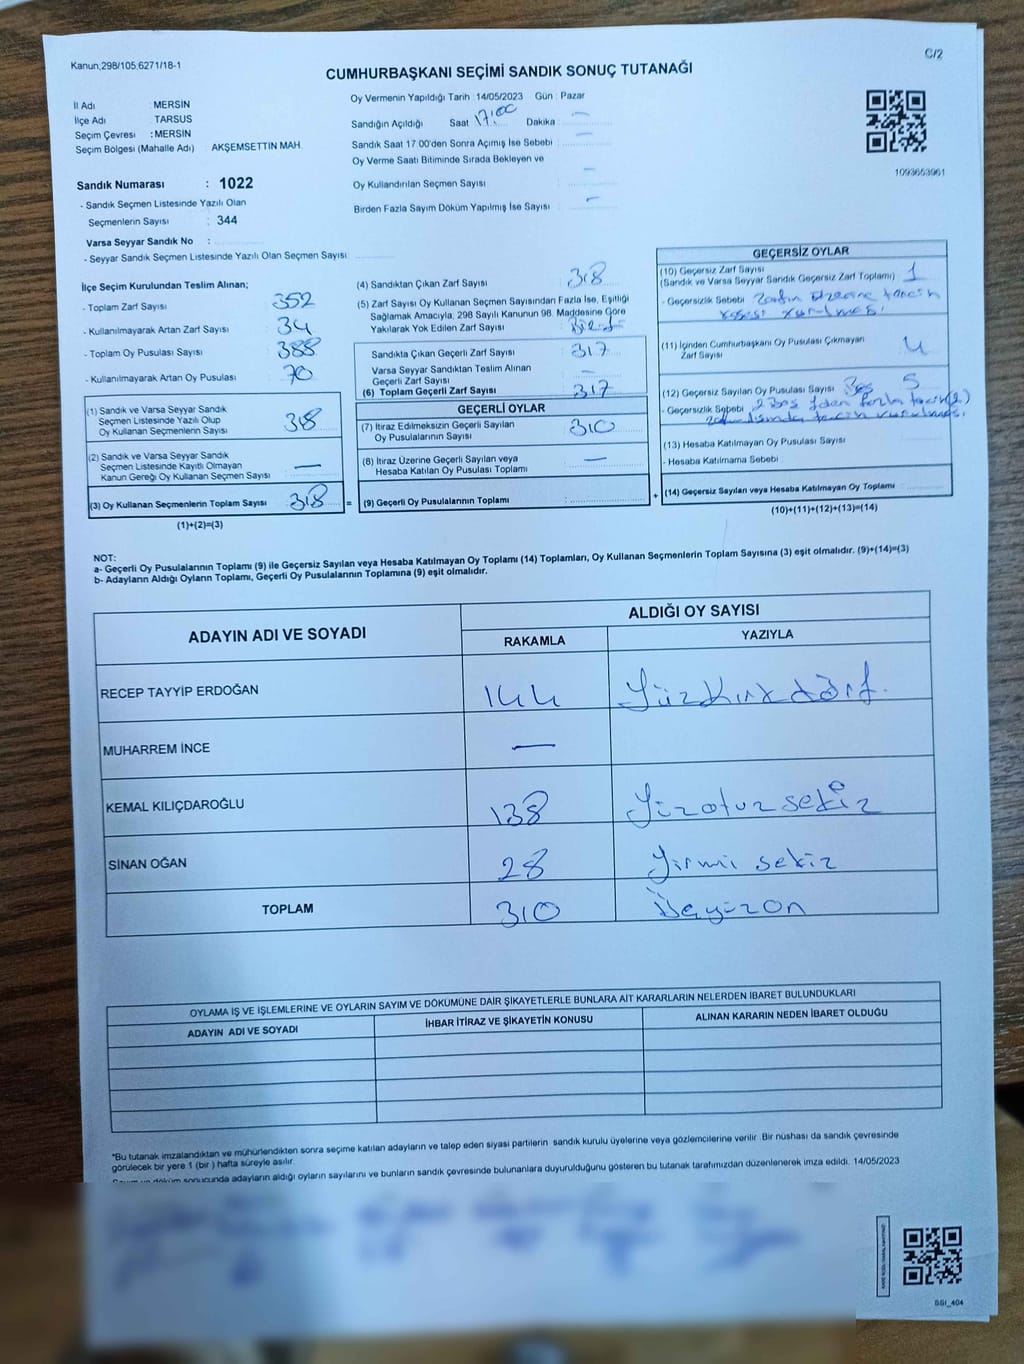 Kanun,298/105,6271/18-1
C/2
CUMHURBAŞKANI SEÇİMİ SANDIK SONUÇ TUTANAĞI
İl Adı : MERSİN
İlçe Adı : TARSUS
Seçim Çevresi : MERSİN
Seçim Bölgesi (Mahalle Adı) : AKŞEMSETTİN MAH.
Sandık Numarası : 1022
- Sandık Seçmen Listesinde Yazılı Olan
Seçmenlerin Sayısı : 344
Varsa Seyyar Sandık No :
- Seyyar Sandık Seçmen Listesinde Yazılı Olan Seçmen Sayısı
Oy Vermenin Yapıldığı Tarih : 14/05/2023 Gün : Pazar
Sandığın Açıldığı Saat 17:00 Dakika : —
Sandık Saat 17:00'den Sonra Açımış İse Sebebi : —
Oy Verme Saati Bitiminde Sırada Bekleyen ve
Oy Kullandırılan Seçmen Sayısı —
Birden Fazla Sayım Döküm Yapılmış İse Sayısı : —
1093653961
İlçe Seçim Kurulundan Teslim Alınan;
- Toplam Zarf Sayısı : 352
- Kullanılmayarak Artan Zarf Sayısı : 34
- Toplam Oy Pusulası Sayısı : 388
- Kullanılmayarak Artan Oy Pusulası : 70
(1) Sandık ve Varsa Seyyar Sandık
Seçmen Listesinde Yazılı Olup
Oy Kullanan Seçmenlerin Sayısı : 318
(2) Sandık ve Varsa Seyyar Sandık
Seçmen Listesinde Kayıtlı Olmayan
Kanun Gereği Oy Kullanan Seçmen Sayısı : —
(3) Oy Kullanan Seçmenlerin Toplam Sayısı : 318 =
(1)+(2)=(3)
(4) Sandıktan Çıkan Zarf Sayısı : 318
(5) Zarf Sayısı Oy Kullanan Seçmen Sayısından Fazla İse, Eşitliği
Sağlamak Amacıyla, 298 Sayılı Kanunun 98. Maddesine Göre
Yakılarak Yok Edilen Zarf Sayısı :
Sandıkta Çıkan Geçerli Zarf Sayısı : 317
Varsa Seyyar Sandıktan Teslim Alınan
Geçerli Zarf Sayısı : —
(6) Toplam Geçerli Zarf Sayısı : 317
GEÇERLİ OYLAR
(7) İtiraz Edilmeksizin Geçerli Sayılan
Oy Pusulalarının Sayısı : 310
(8) İtiraz Üzerine Geçerli Sayılan veya
Hesaba Katılan Oy Pusulası Toplamı : —
(9) Geçerli Oy Pusulalarının Toplamı : +
GEÇERSİZ OYLAR
(10) Geçersiz Zarf Sayısı
(Sandık ve Varsa Seyyar Sandık Geçersiz Zarf Toplamı) 1
- Geçersizlik Sebebi : Zarfın üzerine tercih
(11) İçinden Cumhurbaşkanı Oy Pusulası Çıkmayan
Zarf Sayısı : 4
(12) Geçersiz Sayılan Oy Pusulası Sayısı : 5
- Geçersizlik Sebebi : 2 Boş 1'den fazla tercih(2)
(13) Hesaba Katılmayan Oy Pusulası Sayısı :
- Hesaba Katılmama Sebebi :
(14) Geçersiz Sayılan veya Hesaba Katılmayan Oy Toplamı :
(10)+(11)+(12)+(13)=(14)
NOT:
a- Geçerli Oy Pusulalarının Toplamı (9) ile Geçersiz Sayılan veya Hesaba Katılmayan Oy Toplamı (14) Toplamları, Oy Kullanan Seçmenlerin Toplam Sayısına (3) eşit olmalıdır. (9)+(14)=(3)
b- Adayların Aldığı Oyların Toplamı, Geçerli Oy Pusulalarının Toplamına (9) eşit olmalıdır.
ADAYIN ADI VE SOYADI
ALDIĞI OY SAYISI
RAKAMLA YAZIYLA
RECEP TAYYİP ERDOĞAN 144 Yüzkırkdört.
MUHARREM İNCE —
KEMAL KILIÇDAROĞLU 138 Yüzotuzsekiz
SİNAN OĞAN 28 Yirmi sekiz
TOPLAM 310 Üçyüzon
OYLAMA İŞ VE İŞLEMLERİNE VE OYLARIN SAYIM VE DÖKÜMÜNE DAİR ŞİKAYETLERLE BUNLARA AİT KARARLARIN NELERDEN İBARET BULUNDUKLARI
ADAYIN ADI VE SOYADI İHBAR İTİRAZ VE ŞİKAYETİN KONUSU ALINAN KARARIN NEDEN İBARET OLDUĞU
*Bu tutanak imzalandıktan ve mühürlendikten sonra seçime katılan adayların ve talep eden siyasi partilerin sandık kurulu üyelerine veya gözlemcilerine verilir. Bir nüshası da sandık çevresinde
görülecek bir yere 1 (bir ) hafta süreyle asılır.
Sayım ve döküm sonucunda adayların aldığı oyların sayılarını ve bunların sandık çevresinde bulunanlara duyurulduğunu gösteren bu tutanak tarafımızdan düzenlenerek imza edildi. 14/05/2023
SSI_404